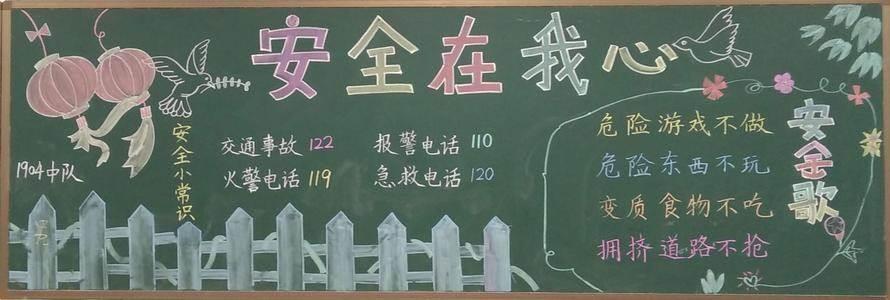 安全在我心
1904中队
安全小常识
交通事故 122 报警电话 110
火警电话 119 急救电话 120
安全歌
危险游戏不做
危险东西不玩
变质食物不吃
拥挤道路不抢